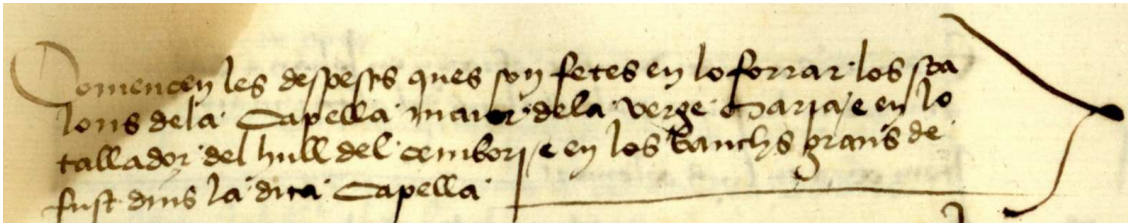 Comencen les despeses ques son fetes en lo forrar los sca
lons dela Capella maior dela verge Maria e en lo
tallador del hull del cembori e en los banchs grans de
fust dins la dita Capella